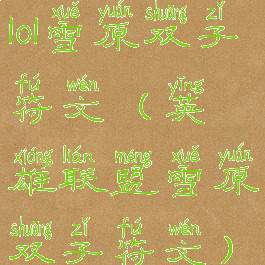 xuě yuán shuāng zǐ
lol雪原双子
fú wén yīng
符文(英
xióng lián méng xuě yuán
雄联盟雪原
shuāng zǐ fú wén
双子符文)